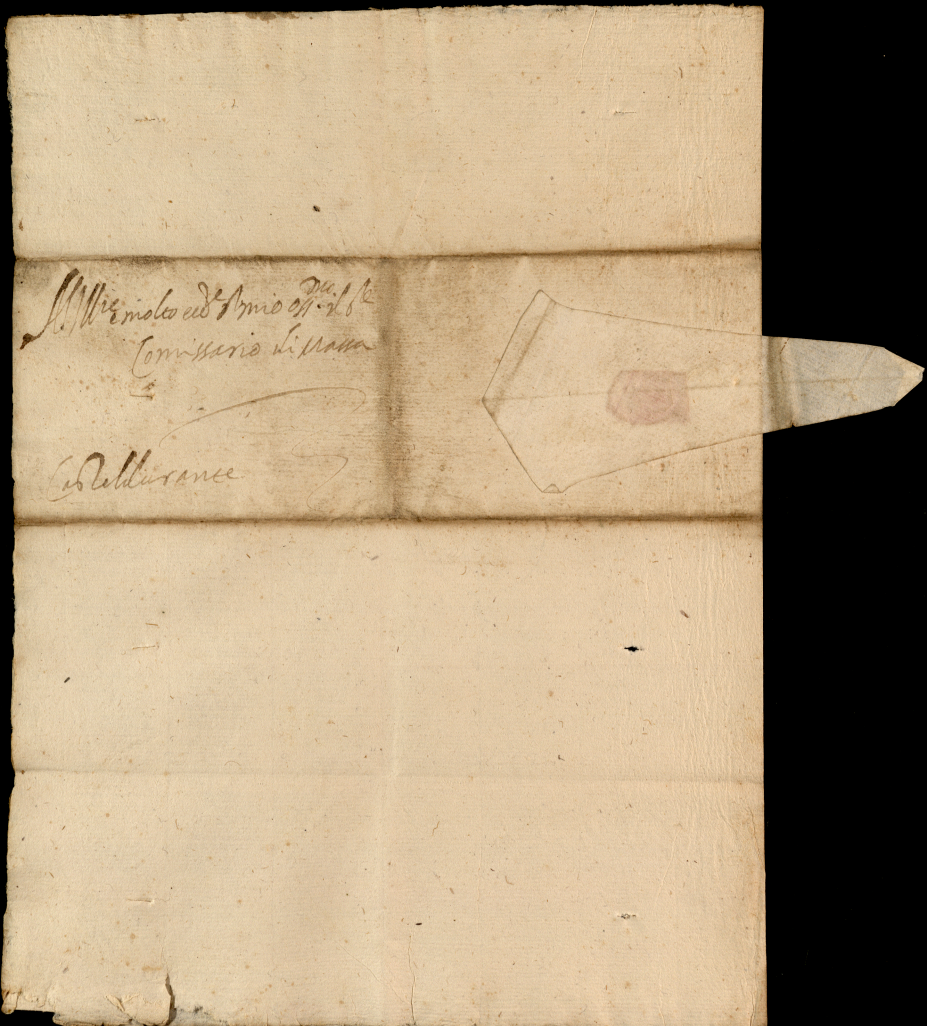 All Ill.re e molto ecc.te s.r mio oss.mo il s.r
Comissario di Massa
Casteldurante